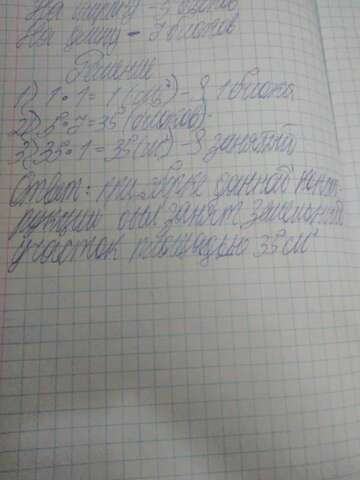 На ширину - 5 блоков
На длину - 7 блоков
Решение
1) 1 · 1 = 1 (м²) - S 1 блока
2) 5 · 7 = 35 (блоков)
3) 35 · 1 = 35 (м²) - S занятый
Ответ: при сборке данной конст-
рукции был занят земельный
участок площадью 35 м²